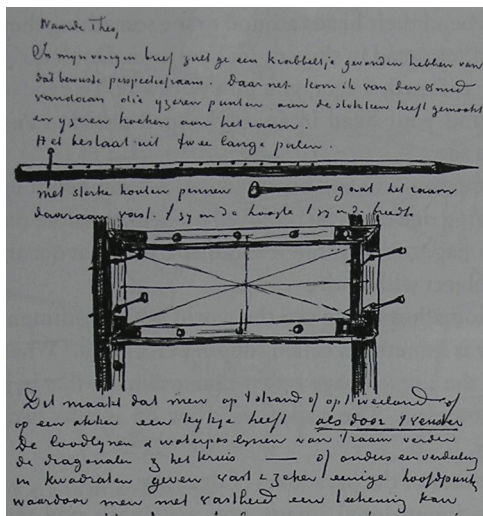 Waarde Theo,
In mijn vorigen brief zult ge een krabbeltje gevonden hebben van
dat bewuste perspectiefraam. Daar net kom ik van den smid
vandaan die yzeren punten aan de stokken heeft gemaakt
en yzeren hoeken aan het raam.
Het bestaat uit twee lange palen.
met sterke houten pennen gaat het raam
daaraan vast. 't zy in de hoogte 't zy in de breedte.
Dit maakt dat men op 't strand of op 't weiland of
op een akker een kykje heeft als door 't venster
De loodlynen & waterpaslynen van 't raam verder
de diagonalen & het kruis — of anders een verdeeling
in kwadraten geven vast & zeker eenige hoofdpunten
waardoor men met vastheid een teekening kan